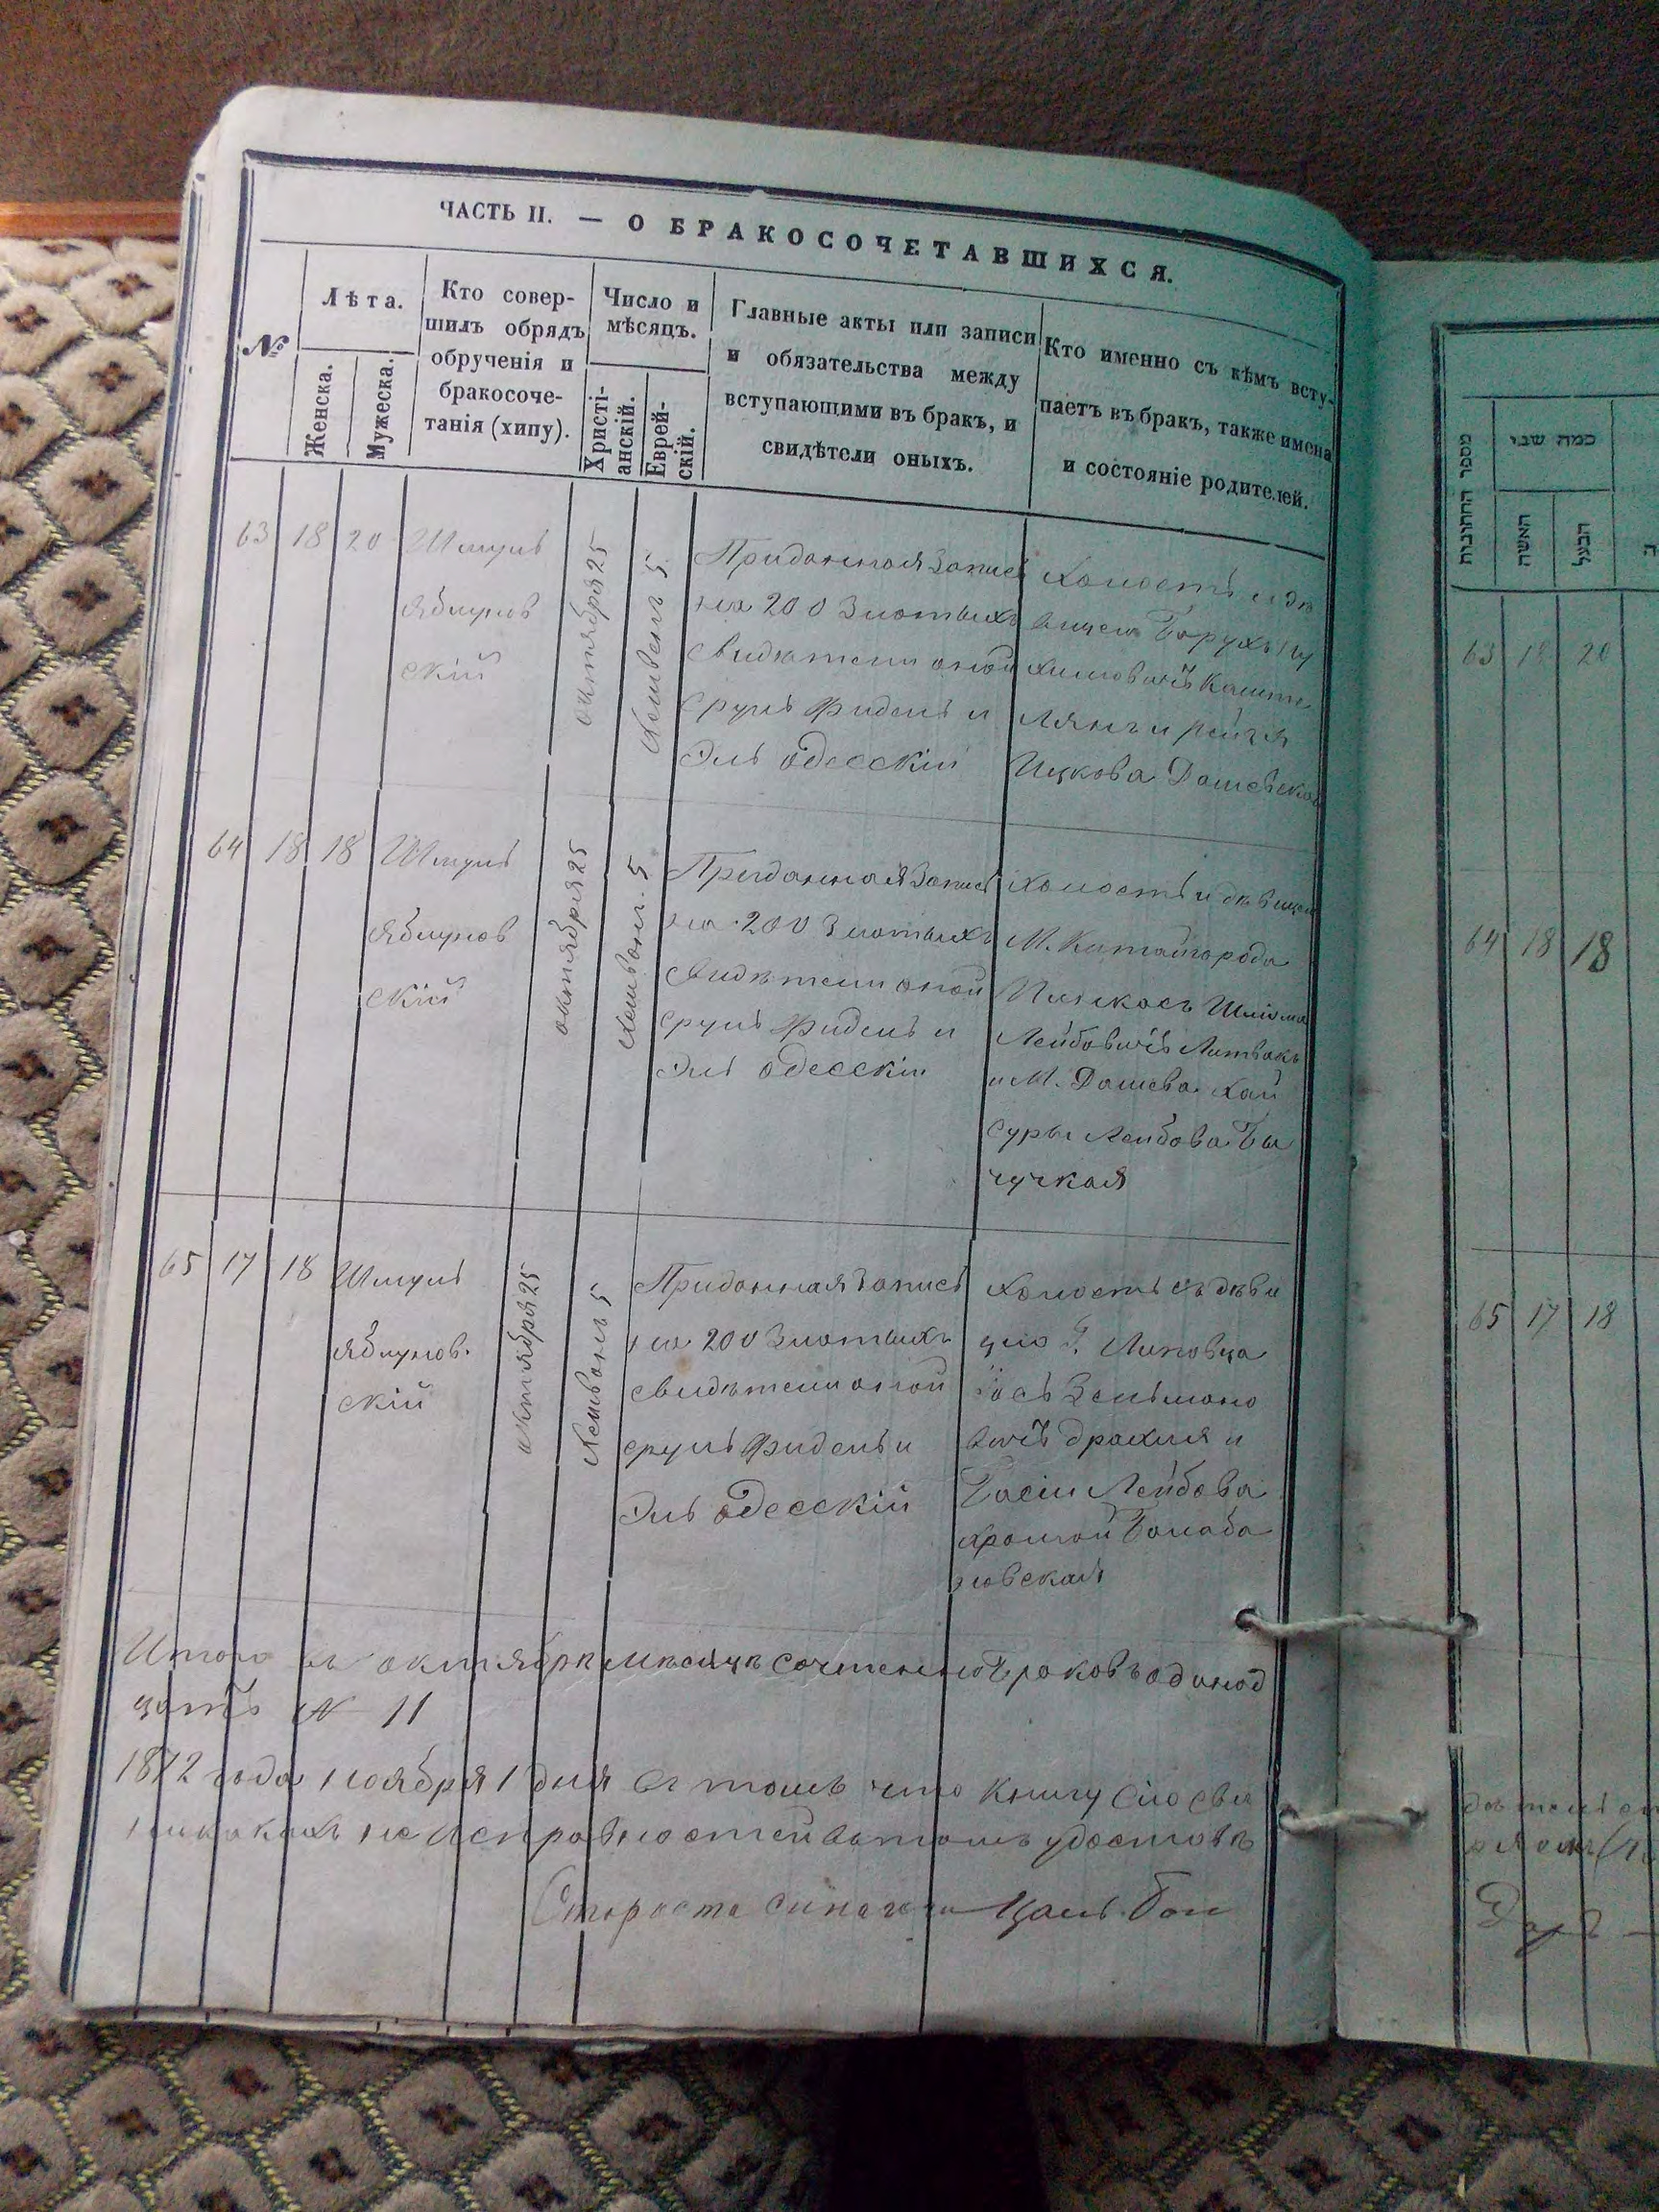 ЧАСТЬ II. — О БРАКОСОЧЕТАВШИХСЯ.
№
Лѣта.
Женска.
Мужеска.
Кто совер-
шилъ обрядъ
обрученія и
бракосоче-
танія (хипу).
Число и
мѣсяцъ.
Христі-
анскій.
Еврей-
скій.
Главные акты или записи
и обязательства между
вступающими въ бракъ, и
свидѣтели оныхъ.
Кто именно съ кѣмъ всту-
паетъ въ бракъ, также имена
и состояніе родителей.
63 18 20
Шмуль
Яблунов
скій
октября 25
Хешвонъ 5
Приданная Запись
на 200 Злотыхъ
свидѣтели оной
Сруль Фидель и
Эль Одесскій
Холостъ и дѣ
вицею Борухъ
Кашти
лянъ и Рейзя
Ицкова Дашевская
64 18 18
Шмуль
Яблунов
скій
октября 25
Хешвонъ 5
Приданная Запись
на 200 Злотыхъ
свидѣтели оной
Сруль Фидель и
Эль Одесскій
Холостъ и дѣвицею
М. Китайгорода
Шліома
Лейбовичъ Литвакъ
и М. Дашева Хаи
Суры Лейбова Бы
чуцкая
65 17 18
Шмуль
Яблунов.
скій
октября 25
Хешвонъ 5
Приданная Запись
на 200 Злотыхъ
свидѣтели оной
Сруль Фидель и
Эль Одесскій
Холостъ съ дѣви
цею Г. Липовца
Іось Зельмано
вичъ Драхля и
Басіи Лейбова
Балаба
новская
Итого въ октябрѣ мѣсяцѣ сочтенно браковъ одинад
цать № 11
1872 года ноября 1 дня въ томъ что книгу сію сви
никакихъ неисправностей въ томъ удостовѣ
Староста синагоги
מספר החתונות
כמה שני
האשה
הבעל
63 18 20
64 18 18
65 17 18